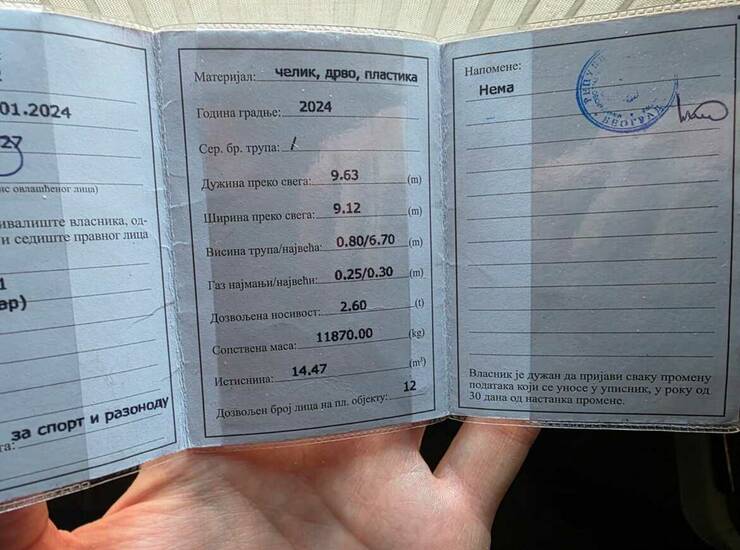 01.2024
27
ис овлашћеног лица)
ивалиште власника, од-
и седиште правног лица
1
ар)
за спорт и разоноду
та:
Материјал: челик, дрво, пластика
Година градње: 2024
Сер. бр. трупа: /
Дужина преко свега: 9.63 (m)
Ширина преко свега: 9.12 (m)
Висина трупа/највећа: 0.80/6.70 (m)
Газ најмањи/највећи: 0.25/0.30 (m)
Дозвољена носивост: 2.60 (t)
Сопствена маса: 11870.00 (kg)
Истиснина: 14.47 (m³)
Дозвољен број лица на пл. објекту: 12
Напомене:
Нема
БЕОГРАД
Власник је дужан да пријави сваку промену
података који се уносе у уписник, у року од
30 дана од настанка промене.